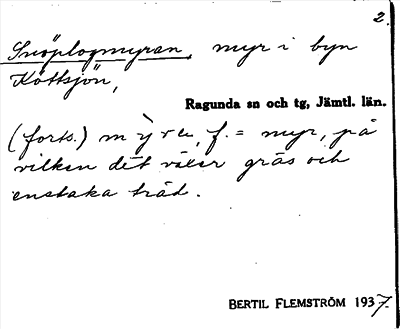 2.
Snöplogmyran, myr i byn
Köttsjön,
Ragunda sn och tg, Jämtl. län.
(forts.) m ỳ ra, f. = myr, på
vilken det växer gräs och
enstaka träd.
BERTIL FLEMSTRÖM 1937.